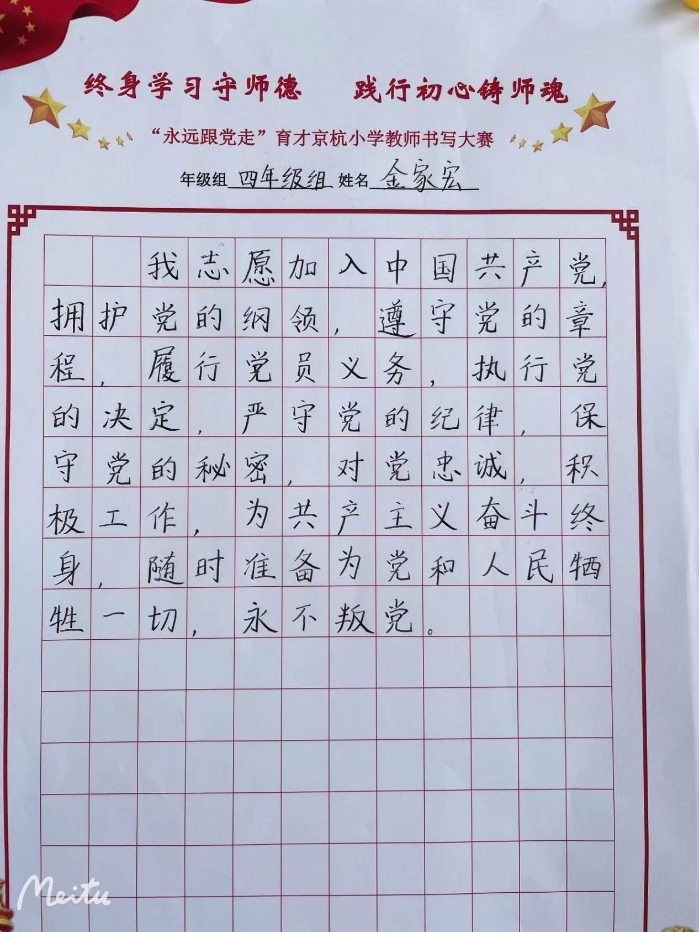 终身学习守师德 践行初心铸师魂
“永远跟党走”育才京杭小学教师书写大赛
年级组 四年级组 姓名 金家宏
我志愿加入中国共产党,
拥护党的纲领,遵守党的章
程,履行党员义务,执行党
的决定,严守党的纪律,保
守党的秘密,对党忠诚,积
极工作,为共产主义奋斗终
身,随时准备为党和人民牺
牲一切,永不叛党。
Meitu